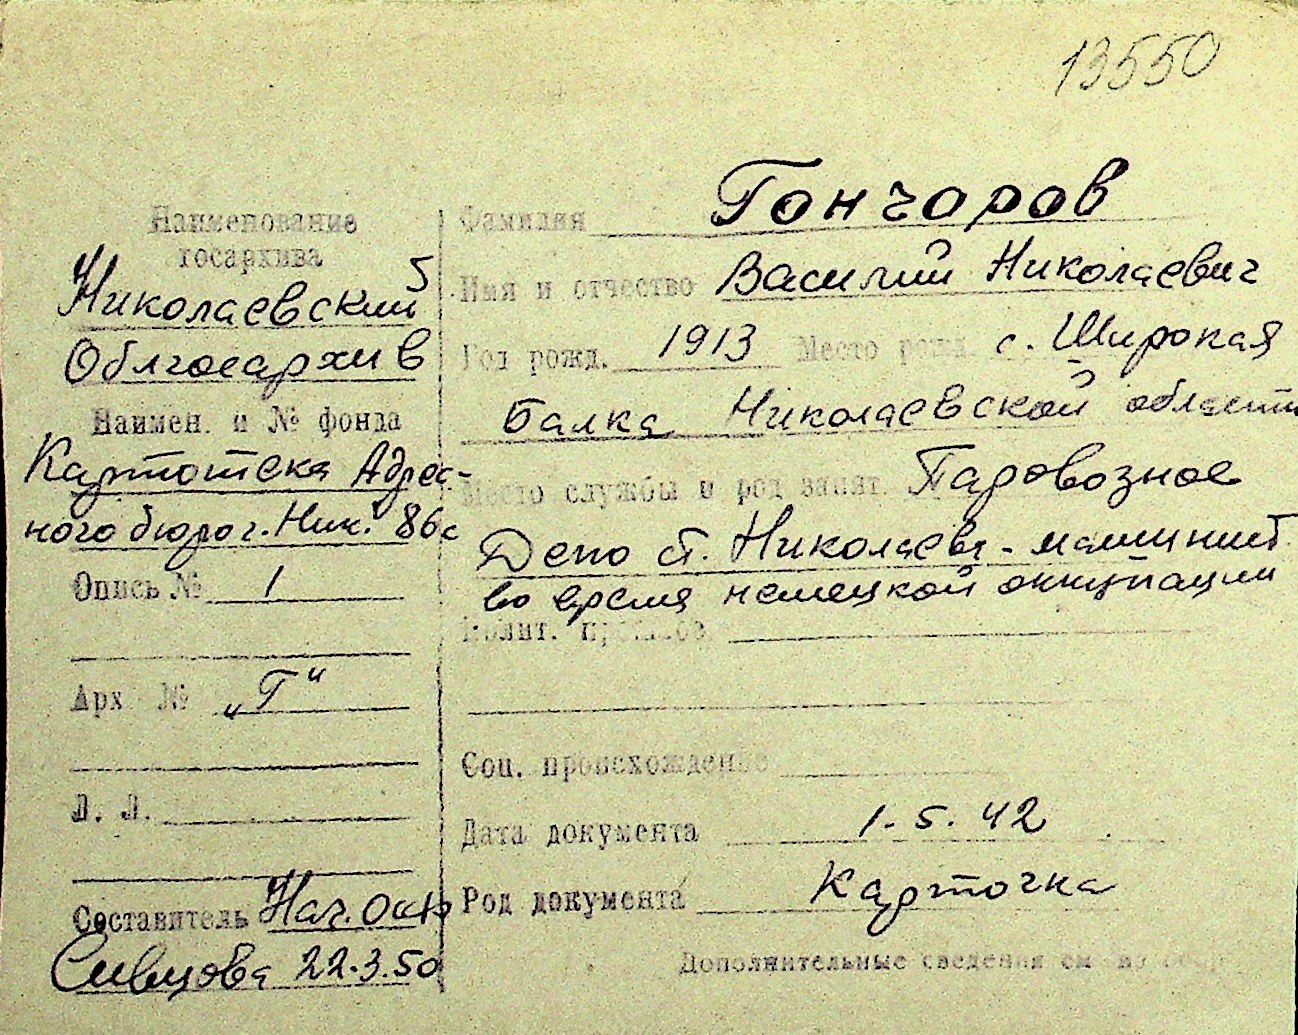 13550
Наименование
госархива
Николаевский
Облгосархив
Наимен. и № фонда
Картотека Адрес-
ного бюро г. Ник. 86с
Опись № 1
Арх № „Г“
Л. Л.
Составитель Нач.
Сивцова 22.3.50
Фамилия Гончаров
Имя и отчество Василий Николаевич
Год рожд. 1913 Место рожд с. Широкая
Балка Николаевской области
Место службы и род занят. Паровозное
Депо ст. Николаев - машинист
во время немецкой оккупации
Полит.
Соц. происхождение
Дата документа 1.5.42
Род документа Карточка
Дополнительные сведения см